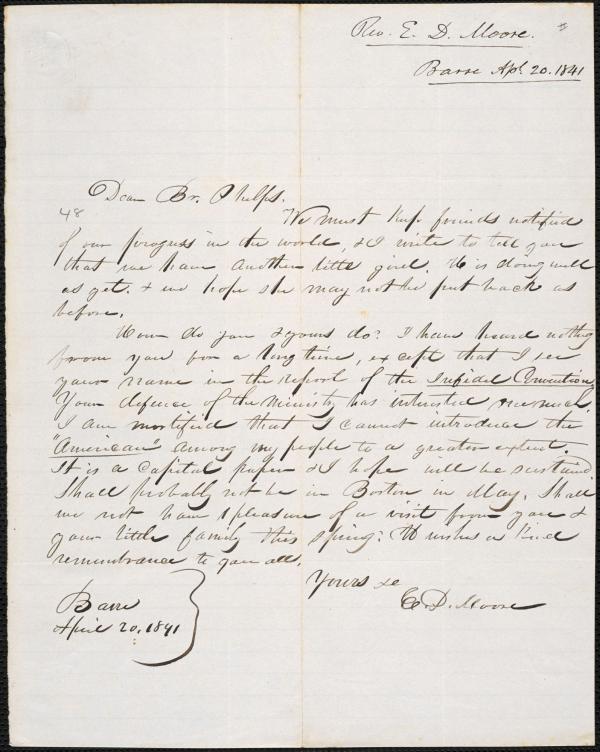 Rev. E. D. Moore.
Barre Apl. 20. 1841
Dear Br. Phelps.
48
We must keep friends notified
of our progress in the world, & I write to tell you
that we have another little girl. is doing well
as yet. & we hope she may not be put back as
before.
How do you & yours do? I have heard nothing
from you for a long time, except that I see
your name in the report of the Infidel Convention.
Your defence of the Ministry has interested me much.
I am mortified that I cannot introduce the
"American" among my people to a greater extent.
It is a Capital paper & I hope will be sustained
I shall probably not be in Boston in May. Shall
we not have pleasure of a visit from you &
your little family this spring? wishes a kind
remembrance to you all.
Yours &c
E. D. Moore
Barre
April 20. 1841